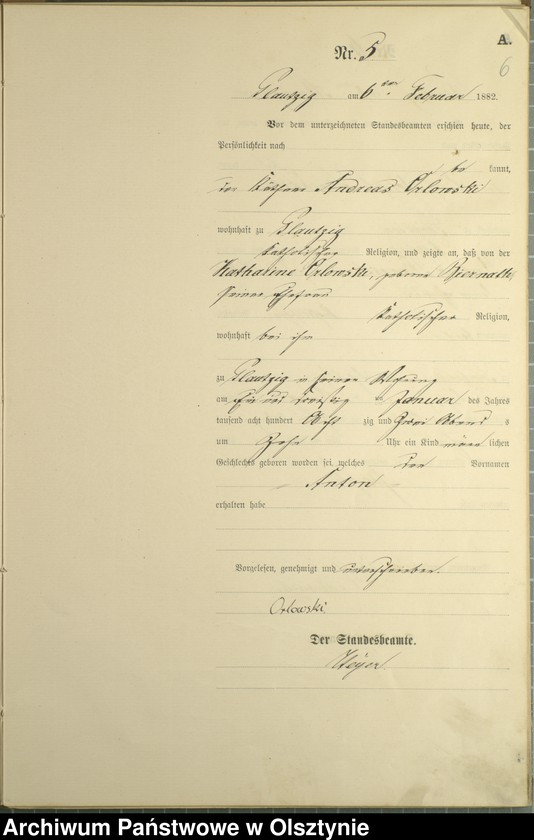 A.
6
Nr. 5
Plautzig am 6ten Februar 1882.
Vor dem unterzeichneten Standesbeamten erschien heute, der
Persönlichkeit nach
be kannt,
der Käthner Andreas Orlowski
wohnhaft zu Plautzig
katholischer Religion, und zeigte an, daß von der
Katharine Orlowski, geborene Biernath,
seiner Ehefrau
katholischer Religion,
wohnhaft bei ihm
zu Plautzig in seiner Wohnung
am ein und dreißig ten Januar des Jahres
tausend acht hundert Acht zig und Zwei Abend s
um Zehn Uhr ein Kind männ lichen
Geschlechts geboren worden sei, welches den Vornamen
Anton
erhalten habe
Vorgelesen, genehmigt und unterschrieben.
Orlowski.
Der Standesbeamte.
Archiwum Państwowe w Olsztynie